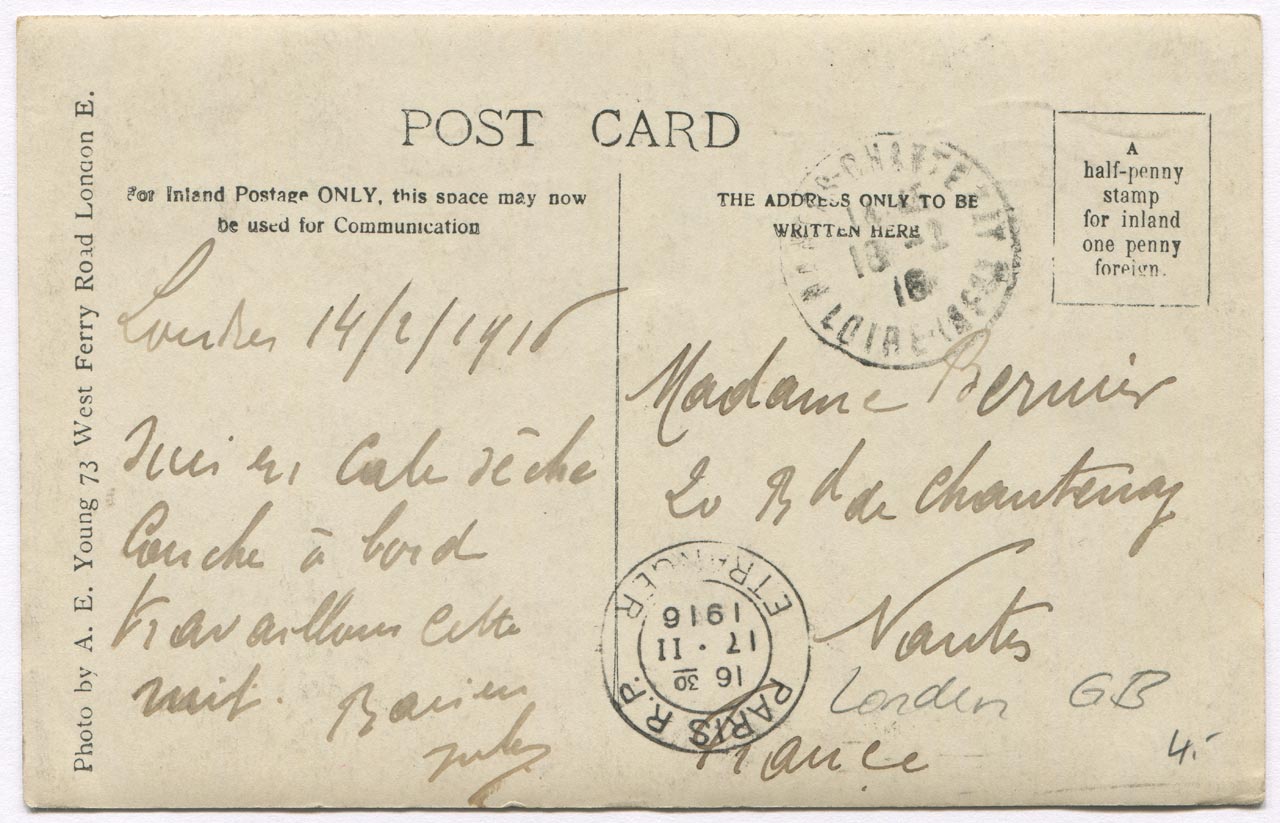 POST CARD
For Inland Postage ONLY, this space may now
be used for Communication
THE ADDRESS ONLY TO BE
WRITTEN HERE
A
half-penny
stamp
for inland
one penny
foreign.
Photo by A. E. Young 73 West Ferry Road London E.
Londres 14/2/1916
Suis en Cale sèche
Couche à bord
travaillons cette
nuit.
Madame Bernier
20 Bd de Chantenay
Nantes
France
London GB
4.-
NANTES-CHANTENAY
18 -2
16
LOIRE-(INFRE)
PARIS R.P.
16 30
17 · II
1916
ETRANGER